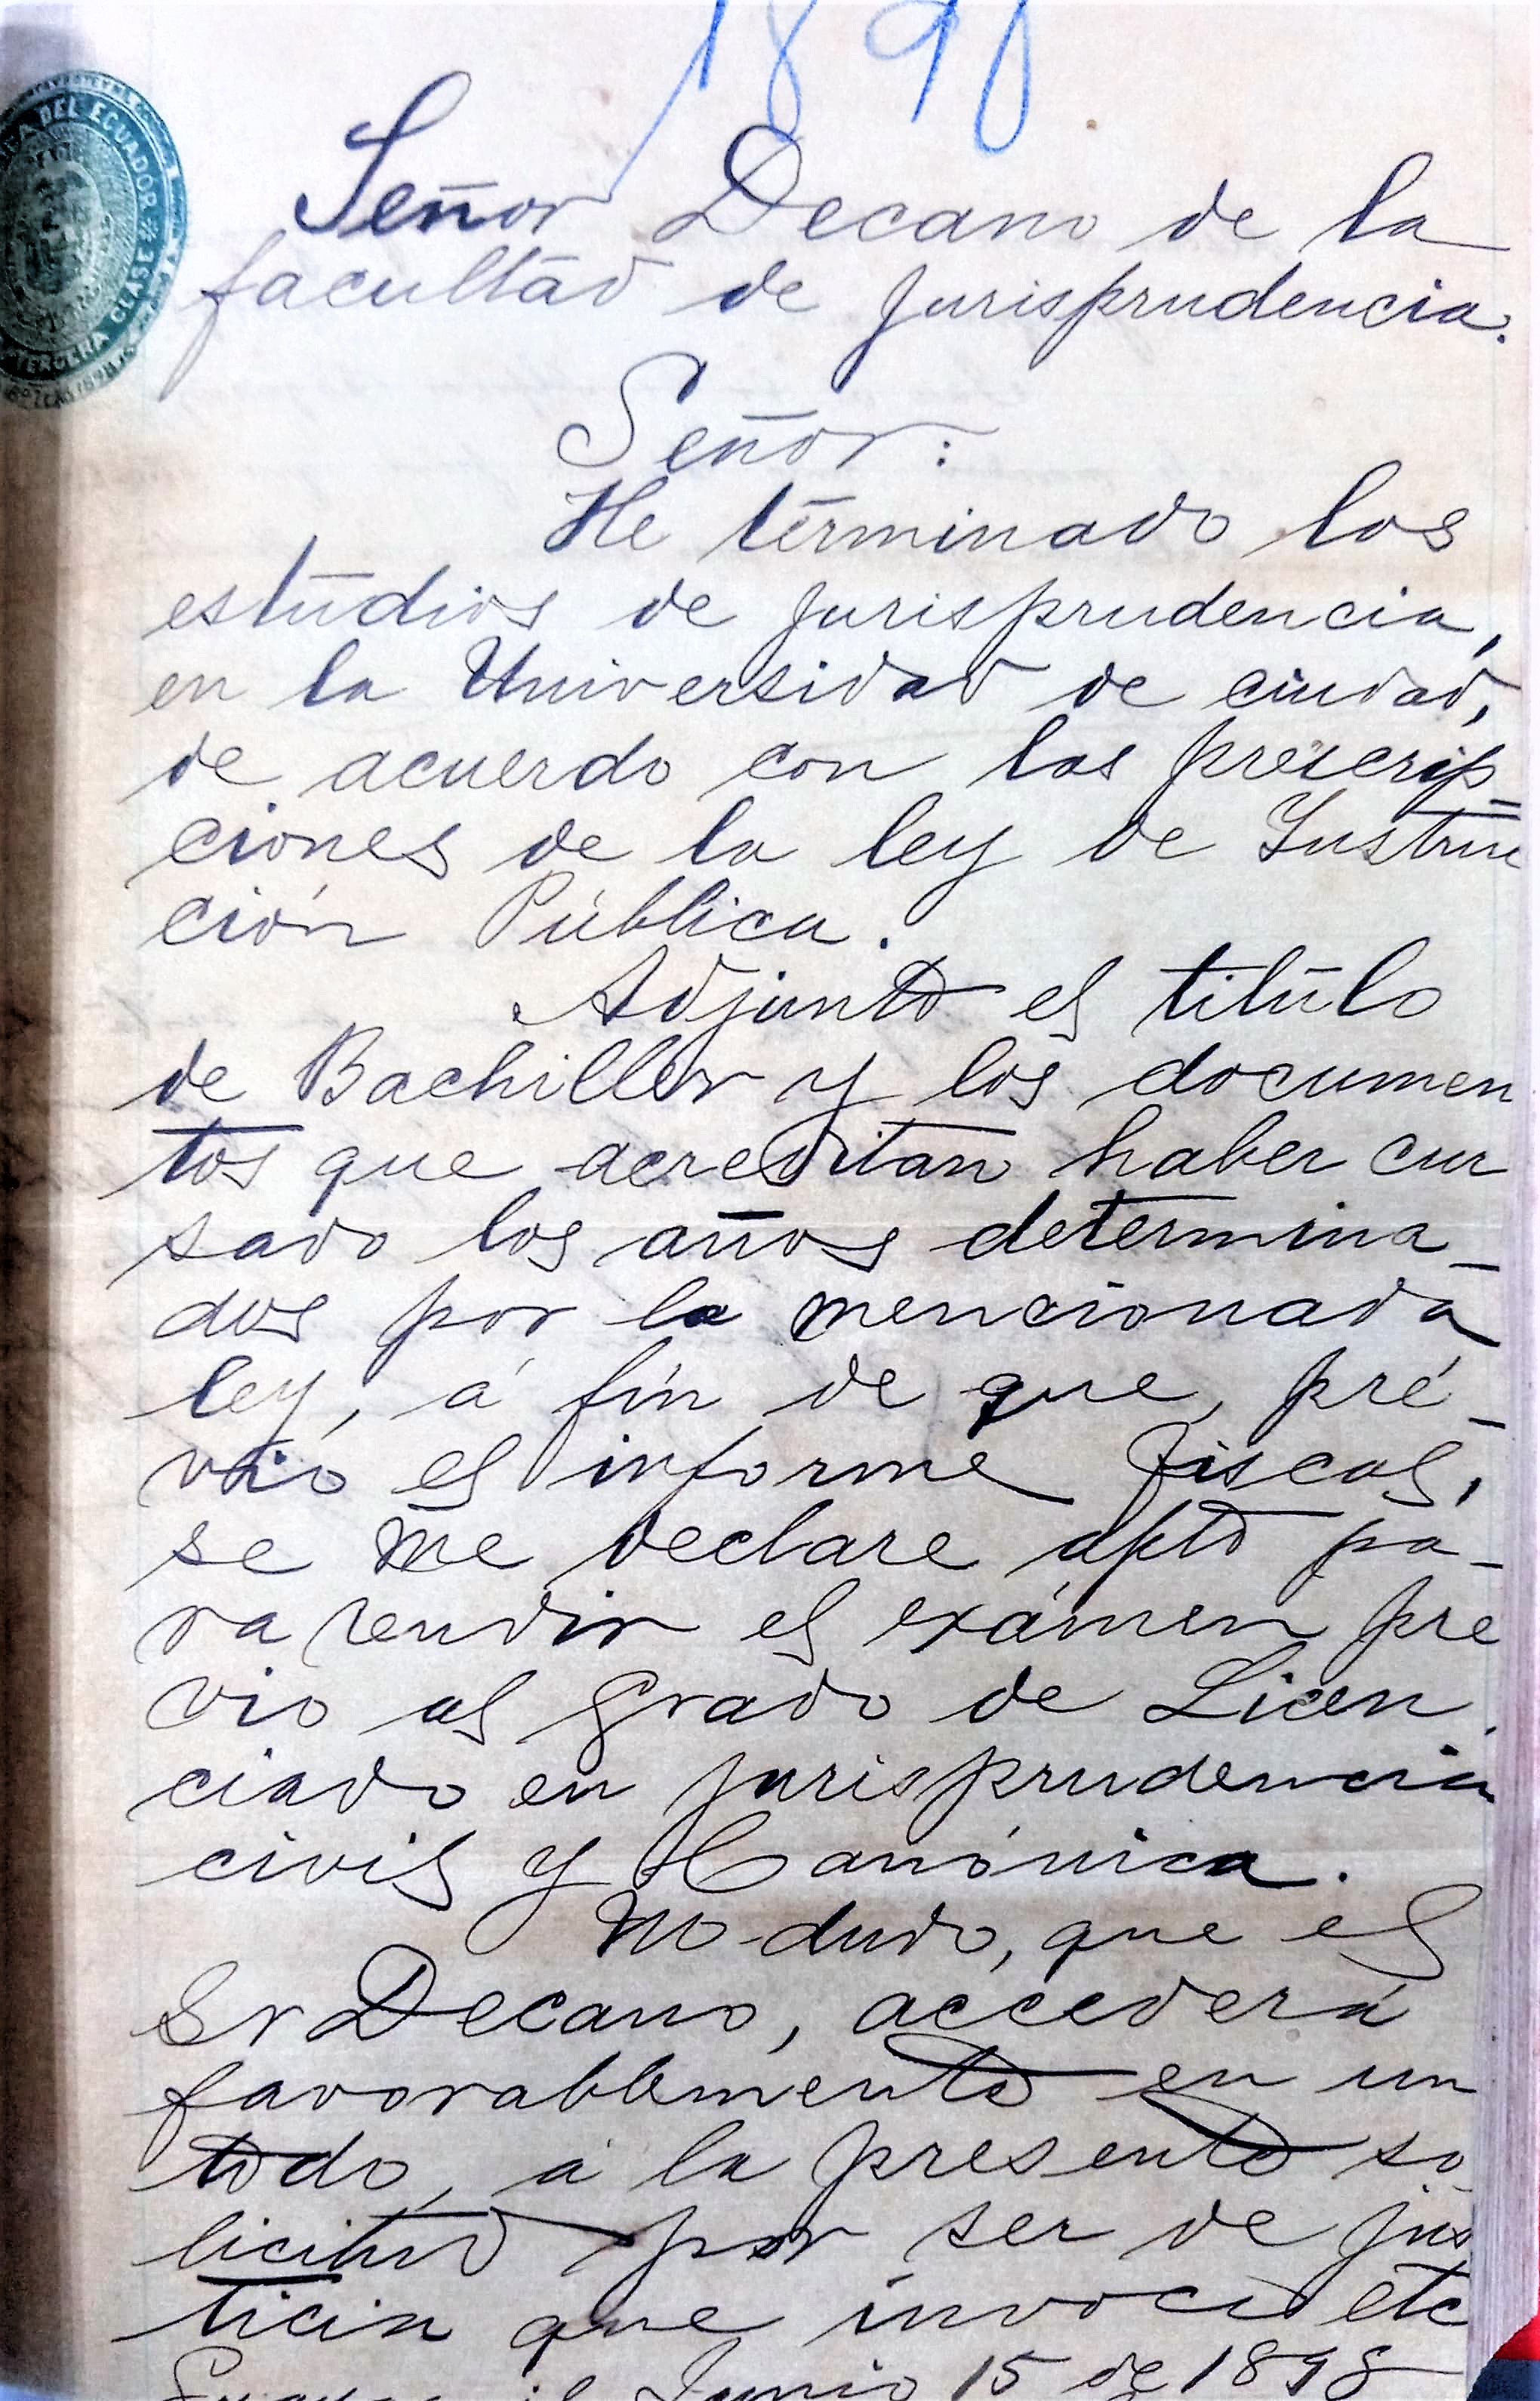 189
DEL ECUADOR
TERCERA CLASE
Señor Decano de la
facultad de jurisprudencia.
Señor:
He terminado los
estudios de jurisprudencia,
en la Universidad de ciudad,
de acuerdo con las prescrip=
ciones de la ley de Instruc
ción Pública.
Adjunto el título
de Bachiller y los documen
tos que acreditan haber cur
sado los años determina_
dos por la mencionada
ley, á fin de que, pré_
vio el informe fiscal,
se me declare apto pa_
ra rendir el exámen pre
vio al grado de Licen
ciado en jurisprudencia
civil y Canónica.
No dudo, que el
Sr Decano, accederá
favorablemente en un
todo, á la presente so
licitud por ser de jus
ticia que invoco etc
Junio 15 de 1898